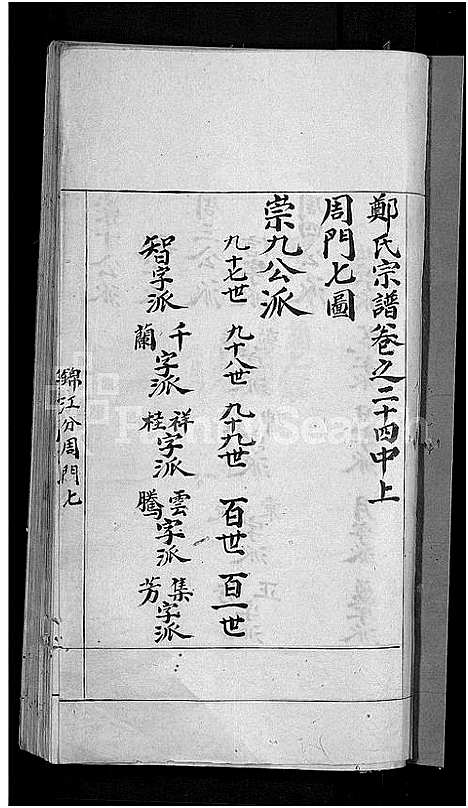 鄭氏宗譜卷之二十四中上
周門七圖
崇九公派
九十七世 九十八世 九十九世 百世 百一世
智字派 千蘭字派 祥桂字派 雲騰字派 集芳字派
錦江分周門七